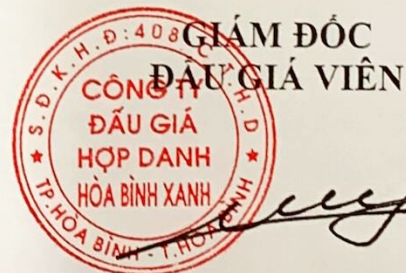 GIÁM ĐỐC
ĐẤU GIÁ VIÊN
S.Đ.K.H.Đ:408 C.T.H.D
CÔNG TY
ĐẤU GIÁ
HỢP DANH
HÒA BÌNH XANH
TP.HÒA BÌNH - T.HÒA BÌNH